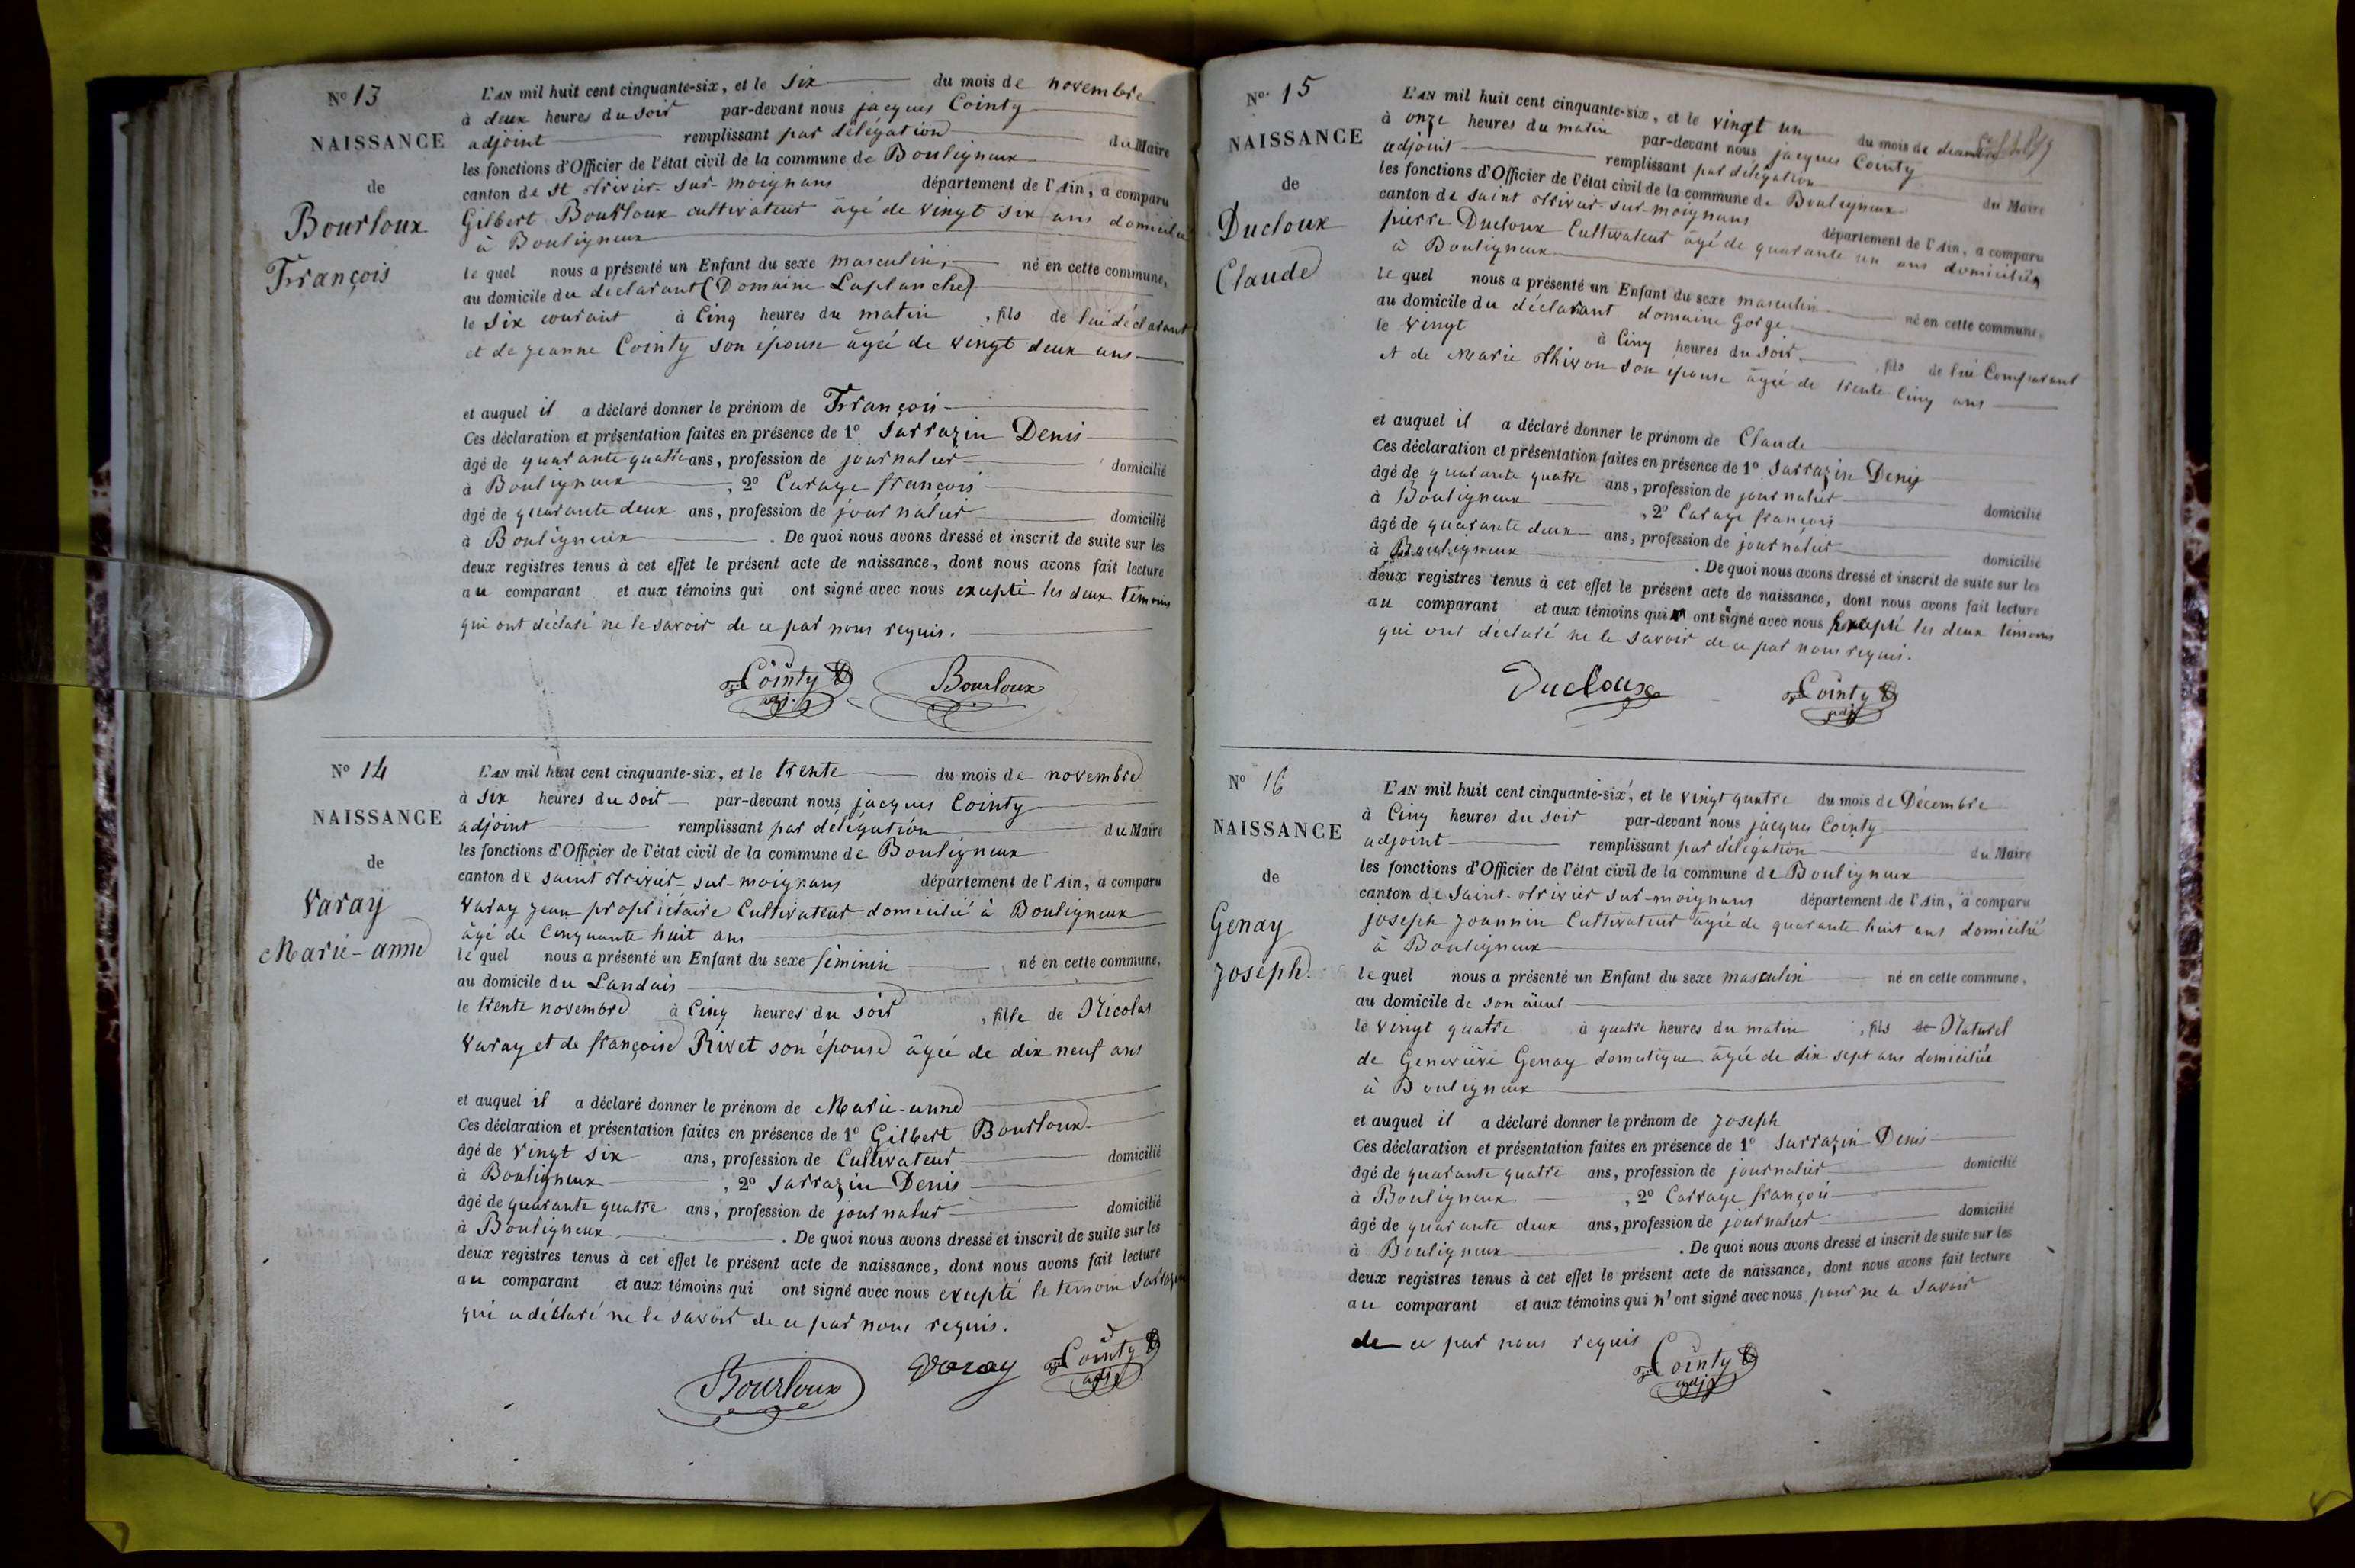 Nº 13
NAISSANCE
de
Bourloux
François
L'AN mil huit cent cinquante-six, et le Six du mois de novembre
à deux heures du Soir par-devant nous jacques Cointy
adjoint remplissant par délégation du Maire
les fonctions d'Officier de l'état civil de la commune de Bouligneux
canton de St trivier-sur-moignans département de l'Ain, a comparu
Gilbert Bourloux cultivateur âgé de vingt six ans domicilié
à Bouligneux
le quel nous a présenté un Enfant du sexe masculin, né en cette commune,
au domicile du déclarant (Domaine Laplanche)
le Six courant à Cinq heures du matin, fils de lui déclarant
et de jeanne Cointy son épouse âgée de vingt deux ans
et auquel il a déclaré donner le prénom de François
Ces déclaration et présentation faites en présence de 1º Sarrazin Denis
âgé de quarante quatre ans, profession de journalier domicilié
à Bouligneux, 2º Carage françois
âgé de quarante deux ans, profession de journalier domicilié
à Bouligneux. De quoi nous avons dressé et inscrit de suite sur les
deux registres tenus à cet effet le présent acte de naissance, dont nous avons fait lecture
au comparant et aux témoins qui ont signé avec nous excepté les deux témoins
qui ont déclaré ne le savoir de ce par nous requis.
Cointy adj. Bourloux
Nº 14
NAISSANCE
de
Varay
Marie-anne
L'AN mil huit cent cinquante-six, et le trente du mois de novembre
à Six heures du soir par-devant nous jacques Cointy
adjoint remplissant par délégation du Maire
les fonctions d'Officier de l'état civil de la commune de Bouligneux
canton de saint trivier-sur-moignans département de l'Ain, a comparu
Varay jean propriétaire Cultivateur domicilié à Bouligneux
âgé de Cinquante huit ans
le quel nous a présenté un Enfant du sexe féminin né en cette commune,
au domicile du Landais
le trente novembre à Cinq heures du soir, fille de Nicolas
Varay et de françoise Rivet son épouse âgée de dix neuf ans
et auquel il a déclaré donner le prénom de Marie-anne
Ces déclaration et présentation faites en présence de 1º Gilbert Bourloux
âgé de vingt six ans, profession de Cultivateur domicilié
à Bouligneux, 2º Sarrazin Denis
âgé de quarante quatre ans, profession de journalier domicilié
à Bouligneux. De quoi nous avons dressé et inscrit de suite sur les
deux registres tenus à cet effet le présent acte de naissance, dont nous avons fait lecture
au comparant et aux témoins qui ont signé avec nous excepté le temoin Sarrazin
qui a déclaré ne le savoir de ce par nous requis.
Bourloux Varay Cointy adj
Nº 15
NAISSANCE
de
Ducloux
Claude
L'AN mil huit cent cinquante-six, et le vingt un du mois de décembre
à onze heures du matin par-devant nous jacques Cointy
adjoint remplissant par délégation du Maire
les fonctions d'Officier de l'état civil de la commune de Bouligneux
canton de saint trivier-sur-moignans département de l'Ain, a comparu
pierre Ducloux Cultivateur âgé de quarante un ans domicilié
à Bouligneux
le quel nous a présenté un Enfant du sexe masculin né en cette commune,
au domicile du déclarant domaine Gorge
le vingt à Cinq heures du soir, fils de lui Comparant
et de Marie thivon son épouse âgée de trente Cinq ans
et auquel il a déclaré donner le prénom de Claude
Ces déclaration et présentation faites en présence de 1º Sarrazin Denis
âgé de quarante quatre ans, profession de journalier domicilié
à Bouligneux, 2º Carage françois
âgé de quarante deux ans, profession de journalier domicilié
à Bouligneux. De quoi nous avons dressé et inscrit de suite sur les
deux registres tenus à cet effet le présent acte de naissance, dont nous avons fait lecture
au comparant et aux témoins qui ont signé avec nous excepté les deux témoins
qui ont déclaré ne le savoir de ce par nous requis.
Ducloux Cointy adj
Nº 16
NAISSANCE
de
Genay
joseph.
L'AN mil huit cent cinquante-six, et le vingt quatre du mois de Décembre
à Cinq heures du soir par-devant nous jacques Cointy
adjoint remplissant par délégation du Maire
les fonctions d'Officier de l'état civil de la commune de Bouligneux
canton de Saint-trivier sur-moignans département de l'Ain, a comparu
joseph joannin Cultivateur âgée de quarante huit ans domicilié
à Bouligneux
le quel nous a présenté un Enfant du sexe masculin né en cette commune,
au domicile de son aïeul
le vingt quatre à quatre heures du matin, fils de Naturel
de Geneviève Genay domestique âgée de dix sept ans domiciliée
à Bouligneux
et auquel il a déclaré donner le prénom de joseph
Ces déclaration et présentation faites en présence de 1º Sarrazin Denis
âgé de quarante quatre ans, profession de journalier domicilié
à Bouligneux, 2º Carrage françois
âgé de quarante deux ans, profession de journalier domicilié
à Bouligneux. De quoi nous avons dressé et inscrit de suite sur les
deux registres tenus à cet effet le présent acte de naissance, dont nous avons fait lecture
au comparant et aux témoins qui n'ont signé avec nous pour ne le savoir
de ce par nous requis
Cointy adj